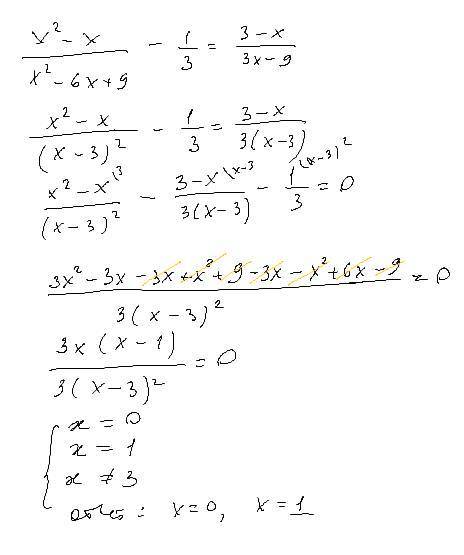 x² - x / x² - 6x + 9 - 1/3 = 3 - x / 3x - 9
x² - x / (x - 3)² - 1/3 = 3 - x / 3(x - 3)
x² - x \3 / (x - 3)² - 3 - x \x-3 / 3(x - 3) - 1 \(x-3)² / 3 = 0
3x² - 3x - 3x + x² + 9 - 3x - x² + 6x - 9 / 3(x - 3)² = 0
3x (x - 1) / 3(x - 3)² = 0
{ x = 0
x = 1
x ≠ 3
x = 0, x = 1